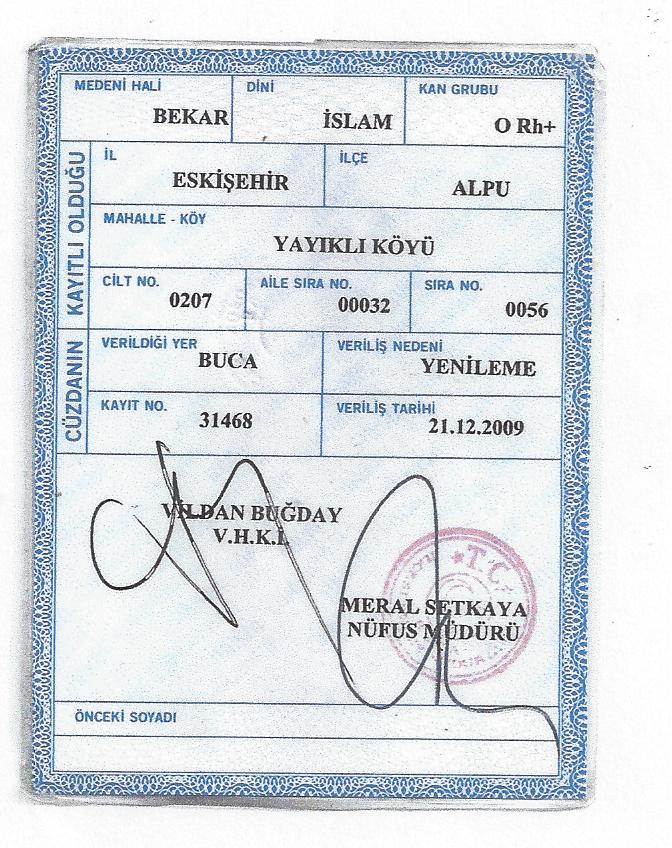 MEDENİ HALİ DİNİ KAN GRUBU
BEKAR İSLAM O Rh+
CÜZDANIN KAYITLI OLDUĞU
İL İLÇE
ESKİŞEHİR ALPU
MAHALLE - KÖY
YAYIKLI KÖYÜ
CİLT NO. AİLE SIRA NO. SIRA NO.
0207 00032 0056
VERİLDİĞİ YER VERİLİŞ NEDENİ
BUCA YENİLEME
KAYIT NO. VERİLİŞ TARİHİ
31468 21.12.2009
VİLDAN BUĞDAY
V.H.K.İ.
T.C.
MERAL SETKAYA
NÜFUS MÜDÜRÜ
ÖNCEKİ SOYADI